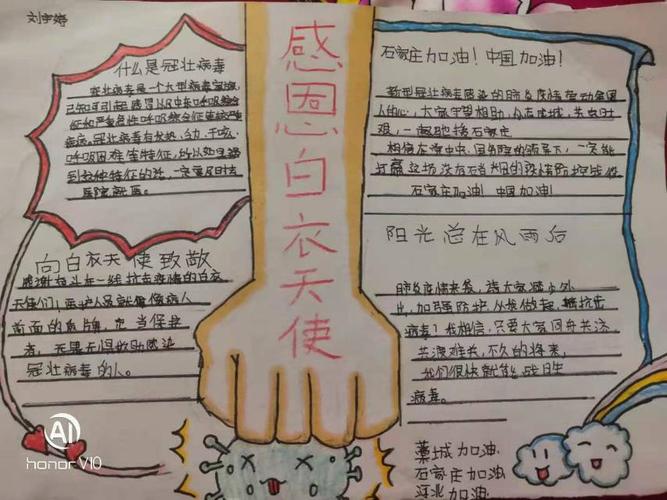 刘宇婷
感恩白衣天使
什么是冠壮病毒
冠壮病毒是一个大型病毒家族,
已知可引起感冒以及中东呼吸综合
征和严重急性呼吸综合征等较严重
疾病。冠壮病毒有发热、乏力、干咳、
呼吸困难等特征,所以如果遇
到这种特征的话,一定要及时去
医院就医。
向白衣天使致敬
感谢奋斗在一线抗击疫情的白衣
天使们,医护人员就像像病人
前面的盾牌,充当保护
者,无畏无惧救助感染
冠壮病毒的人。
石家庄加油!中国加油!
新型冠壮病毒感染的肺炎疫情牵动全国
人的心,大家守望相助,众志成城,共克时
艰,一起驰援石家庄
相信在党中央、国务院的领导下,一定能
打赢这场没有硝烟的疫情防控战役
石家庄加油!中国加油!
阳光总在风雨后
肺炎疫情来袭,请大家减少外
出,加强防护,从我做起,抵抗击
病毒!我相信,只要大家同舟共济,
共渡难关,不久的将来,
我们很快就能战胜
病毒。
藁城加油
石家庄加油
河北加油
AI
honor V10